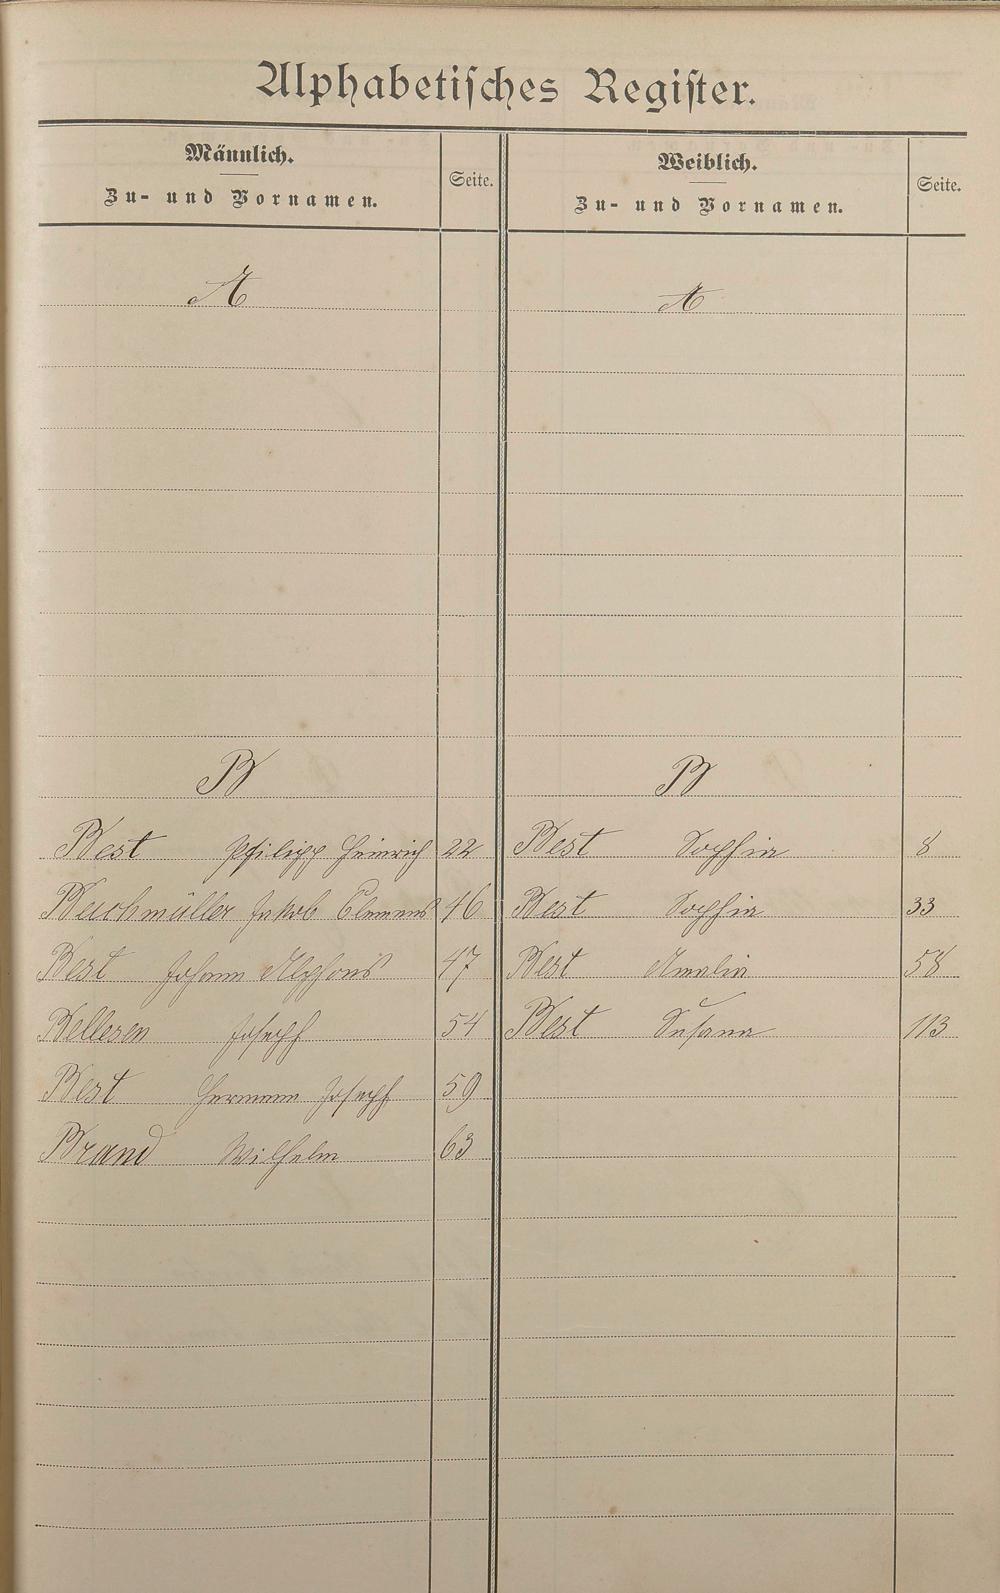 Alphabetisches Register.
Männlich.
Zu- und Vornamen.
Seite.
A
B
Best Philipp Heinrich 22
Buschmüller Jakob Clemens 46
Best Johann Alphons 47
Bellesen Joseph 54
Best Hermann Joseph 59
Brand Wilhelm 63
Weiblich.
Zu- und Vornamen.
Seite.
A
B
Best Sophia 8
Best Sophia 33
Best Amalia 58
Best Susana 113